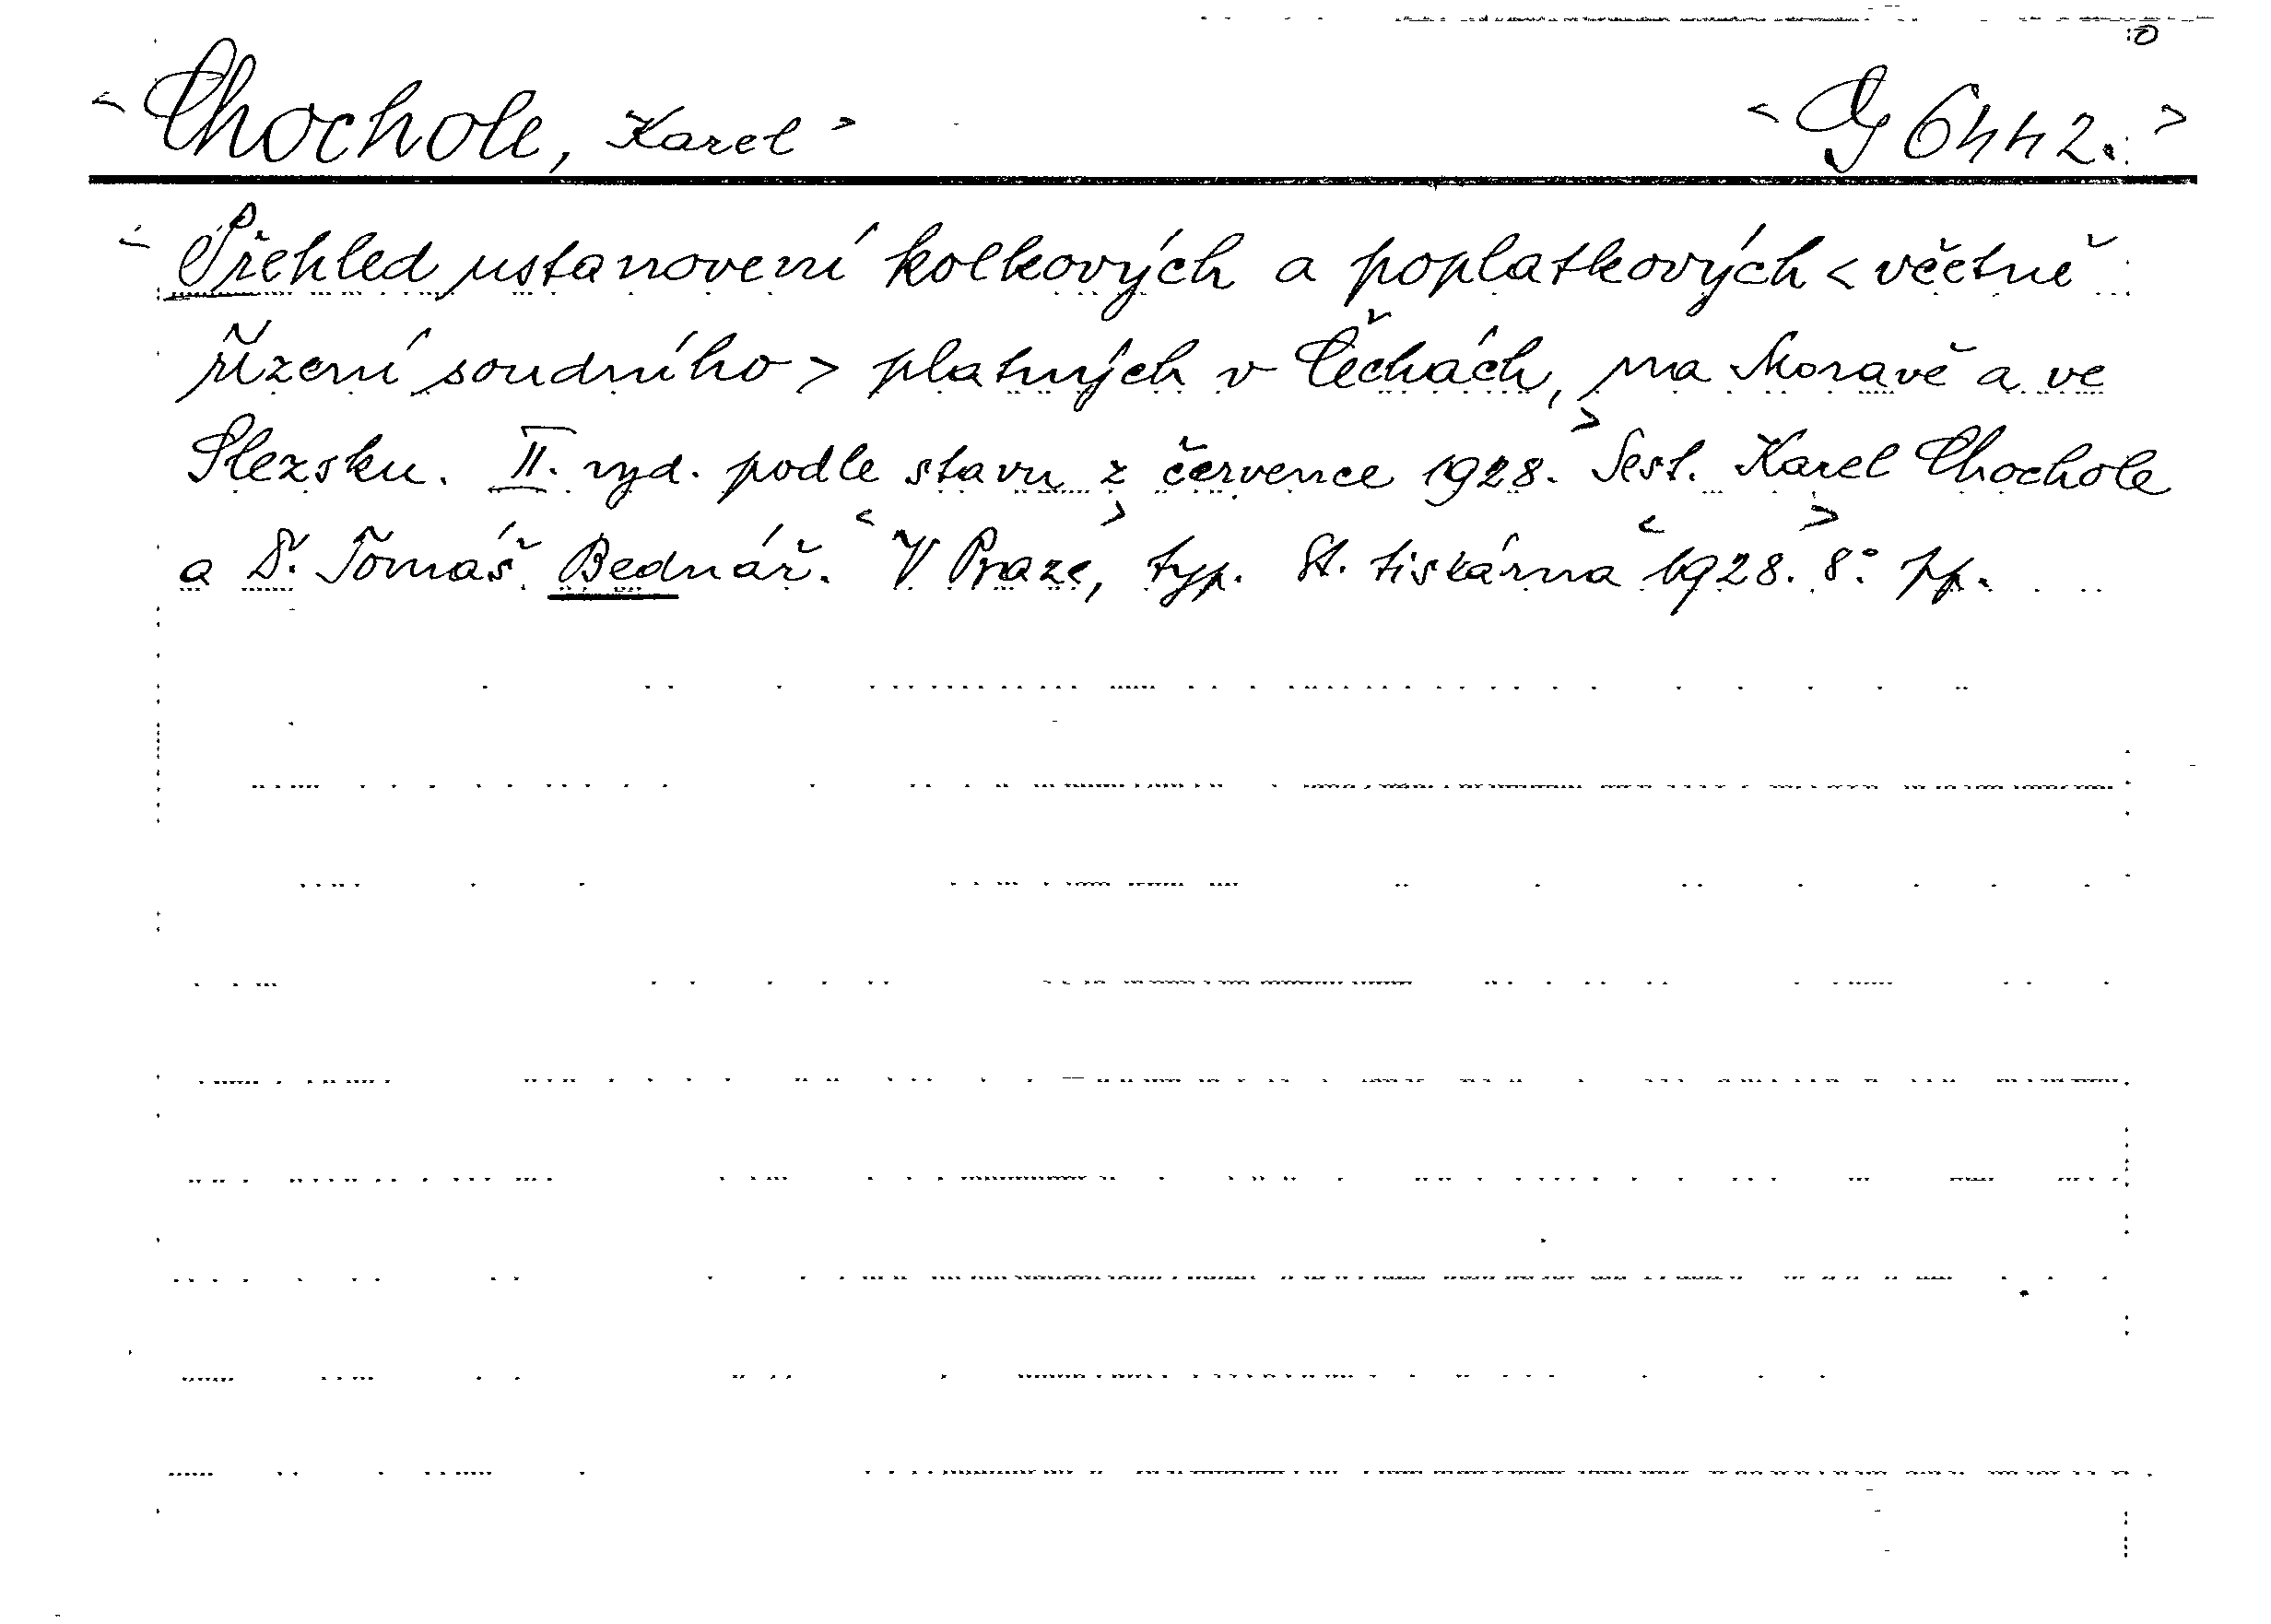 Chochole, Karel Cg 6442.
Přehled ustanovení kolkových a poplatkových < včetně
řízení soudního > platných v Čechách, na Moravě a ve
Slezsku. II. vyd. podle stavu z července 1928. Sest. Karel Chochole
a Dr. Tomáš Bednář. V Praze, typ. St. tiskárna 1928. 8° pp.